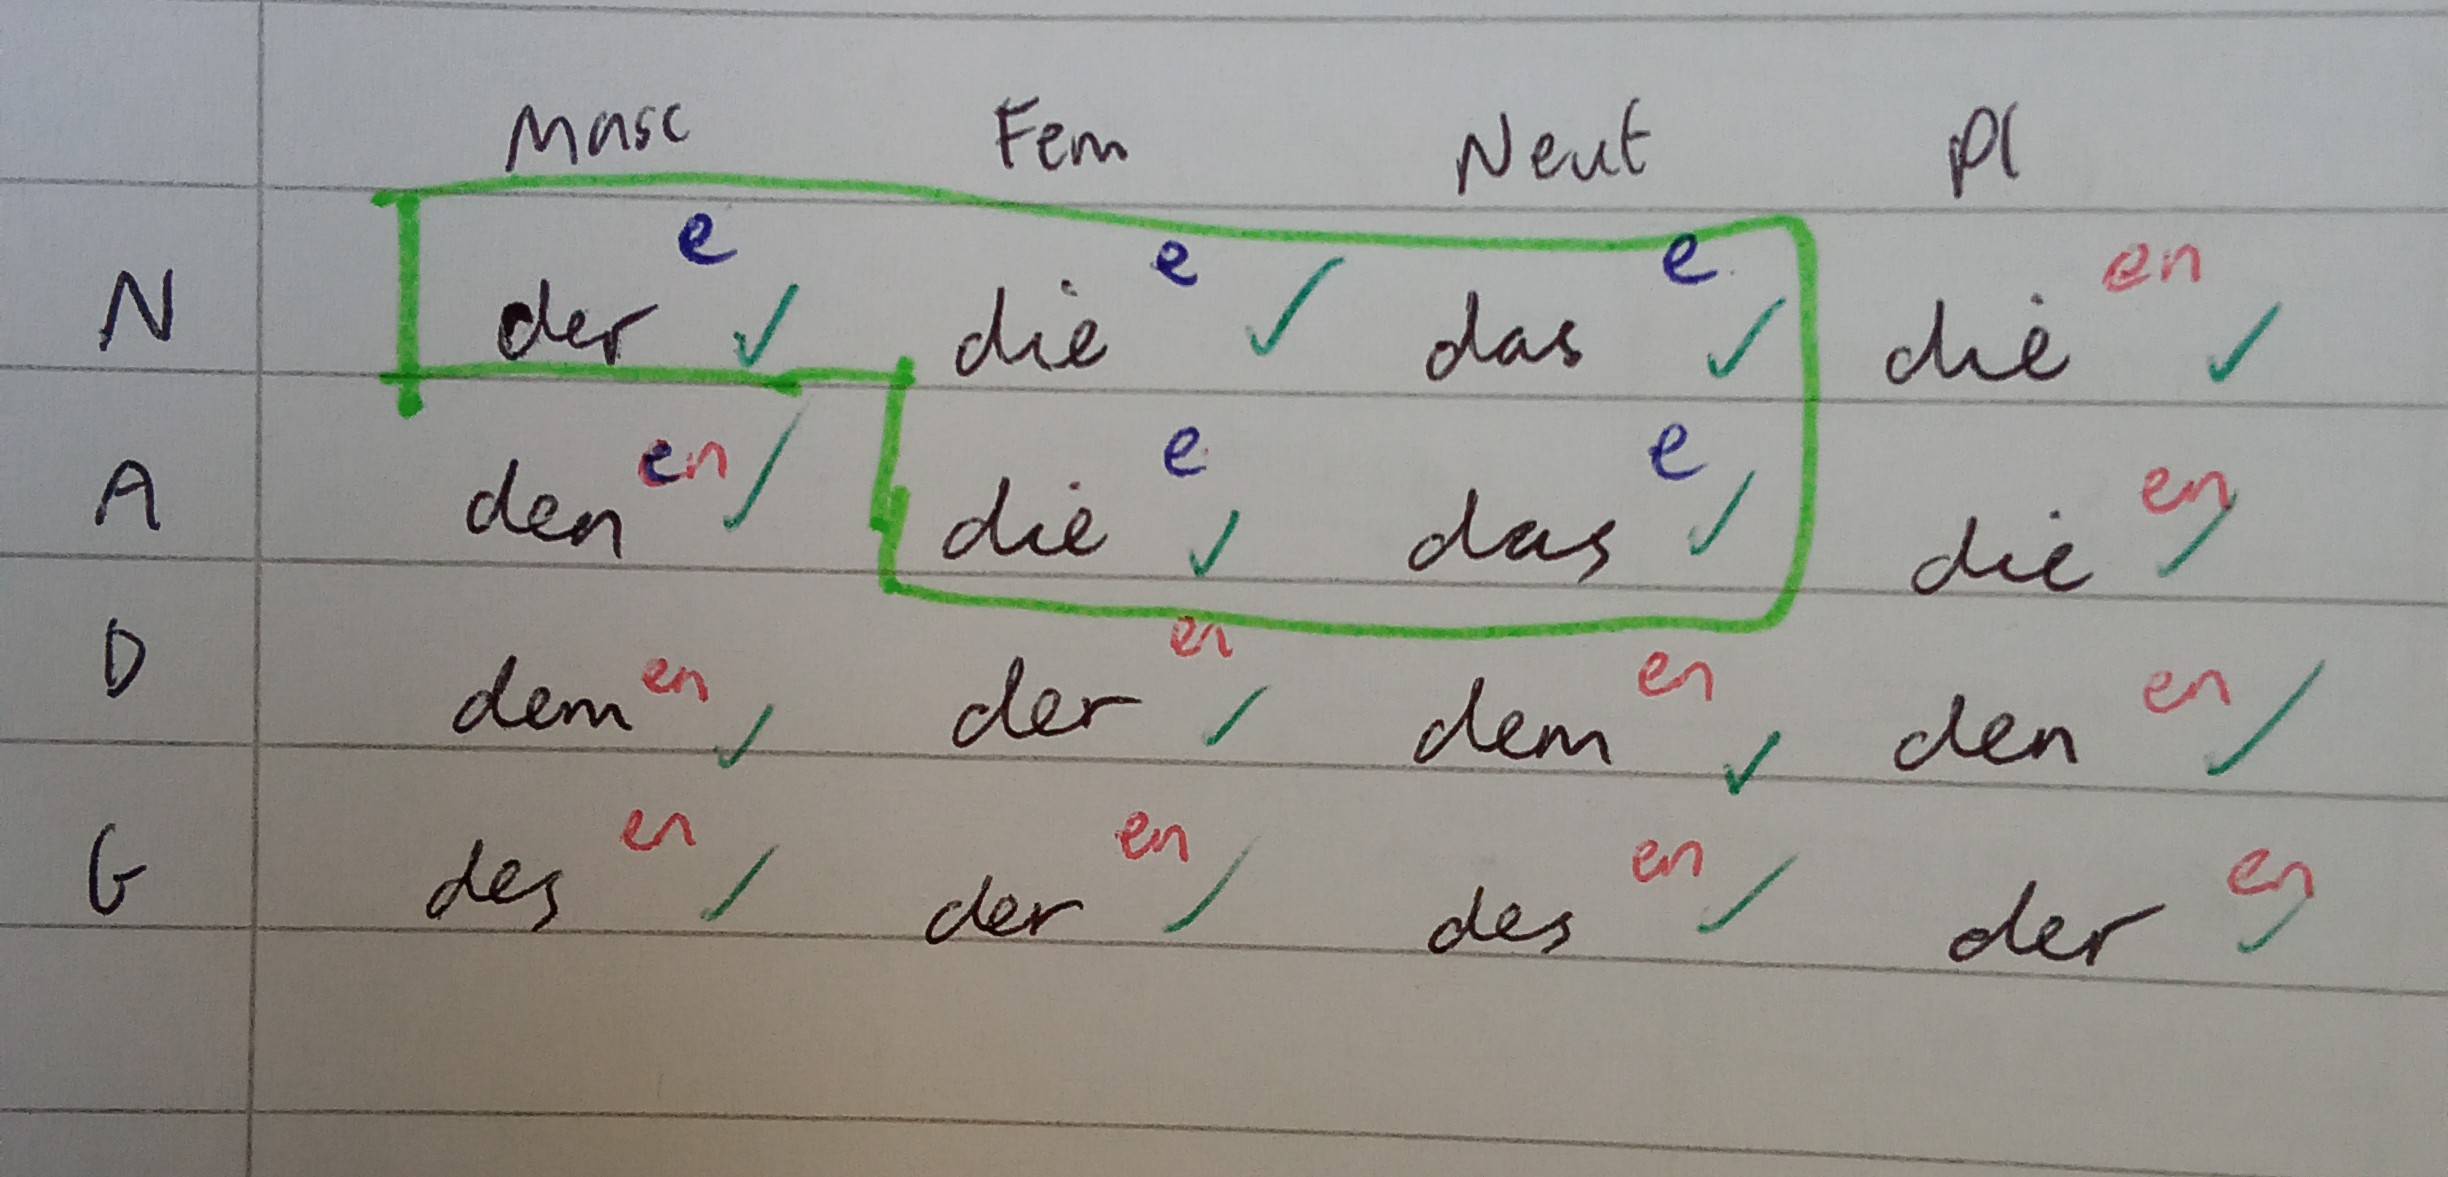 Masc Fem Neut Pl
N der e ✓ die e ✓ das e ✓ die en ✓
A den en ✓ die e ✓ das e ✓ die en ✓
D dem en ✓ der en ✓ dem en ✓ den en ✓
G des en ✓ der en ✓ des en ✓ der en ✓